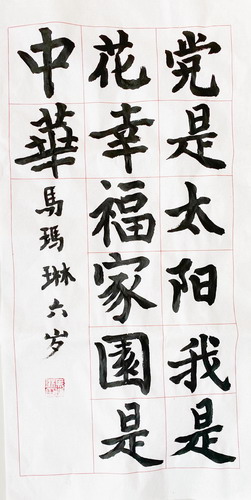 党是太阳我是
花幸福家園是
中華
馬瑪琳六岁